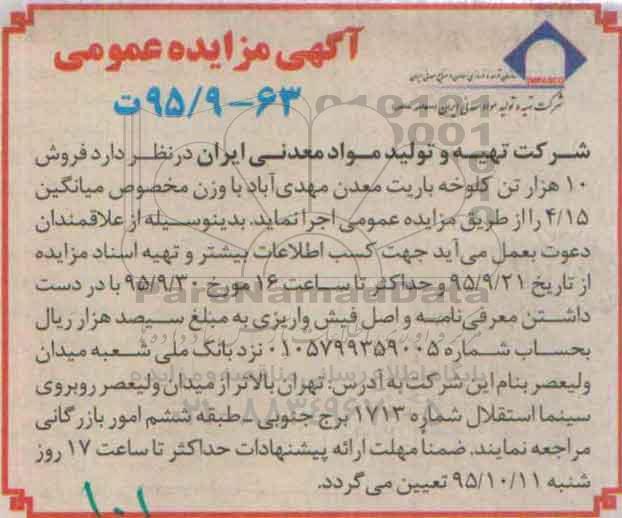 آگهی مزایده عمومی
۶۳-۹۵/۹ت
IMPASCO
شرکت تهیه و تولید مواد معدنی ایران
شرکت تهیه و تولید مواد معدنی ایران در نظر دارد فروش
۱۰ هزار تن کلوخه باریت معدن مهدی‌آباد با وزن مخصوص میانگین
۴/۱۵ را از طریق مزایده عمومی اجرا نماید. بدینوسیله از علاقمندان
دعوت بعمل می‌آید جهت کسب اطلاعات بیشتر و تهیه اسناد مزایده
از تاریخ ۹۵/۹/۲۱ و حداکثر تا ساعت ۱۶ مورخ ۹۵/۹/۳۰ با در دست
داشتن معرفی‌نامه و اصل فیش واریزی به مبلغ سیصد هزار ریال
بحساب شماره ۰۱۰۵۷۹۹۳۵۹۰۰۵ نزد بانک ملی شعبه میدان
ولیعصر بنام این شرکت به آدرس: تهران بالاتر از میدان ولیعصر روبروی
سینما استقلال شماره ۱۷۱۳ برج جنوبی - طبقه ششم امور بازرگانی
مراجعه نمایند. ضمناً مهلت ارائه پیشنهادات حداکثر تا ساعت ۱۷ روز
شنبه ۹۵/۱۰/۱۱ تعیین می‌گردد.
ParsNamadData
پایگاه اطلاع رسانی مناقصه و مزایده
۱۰۱